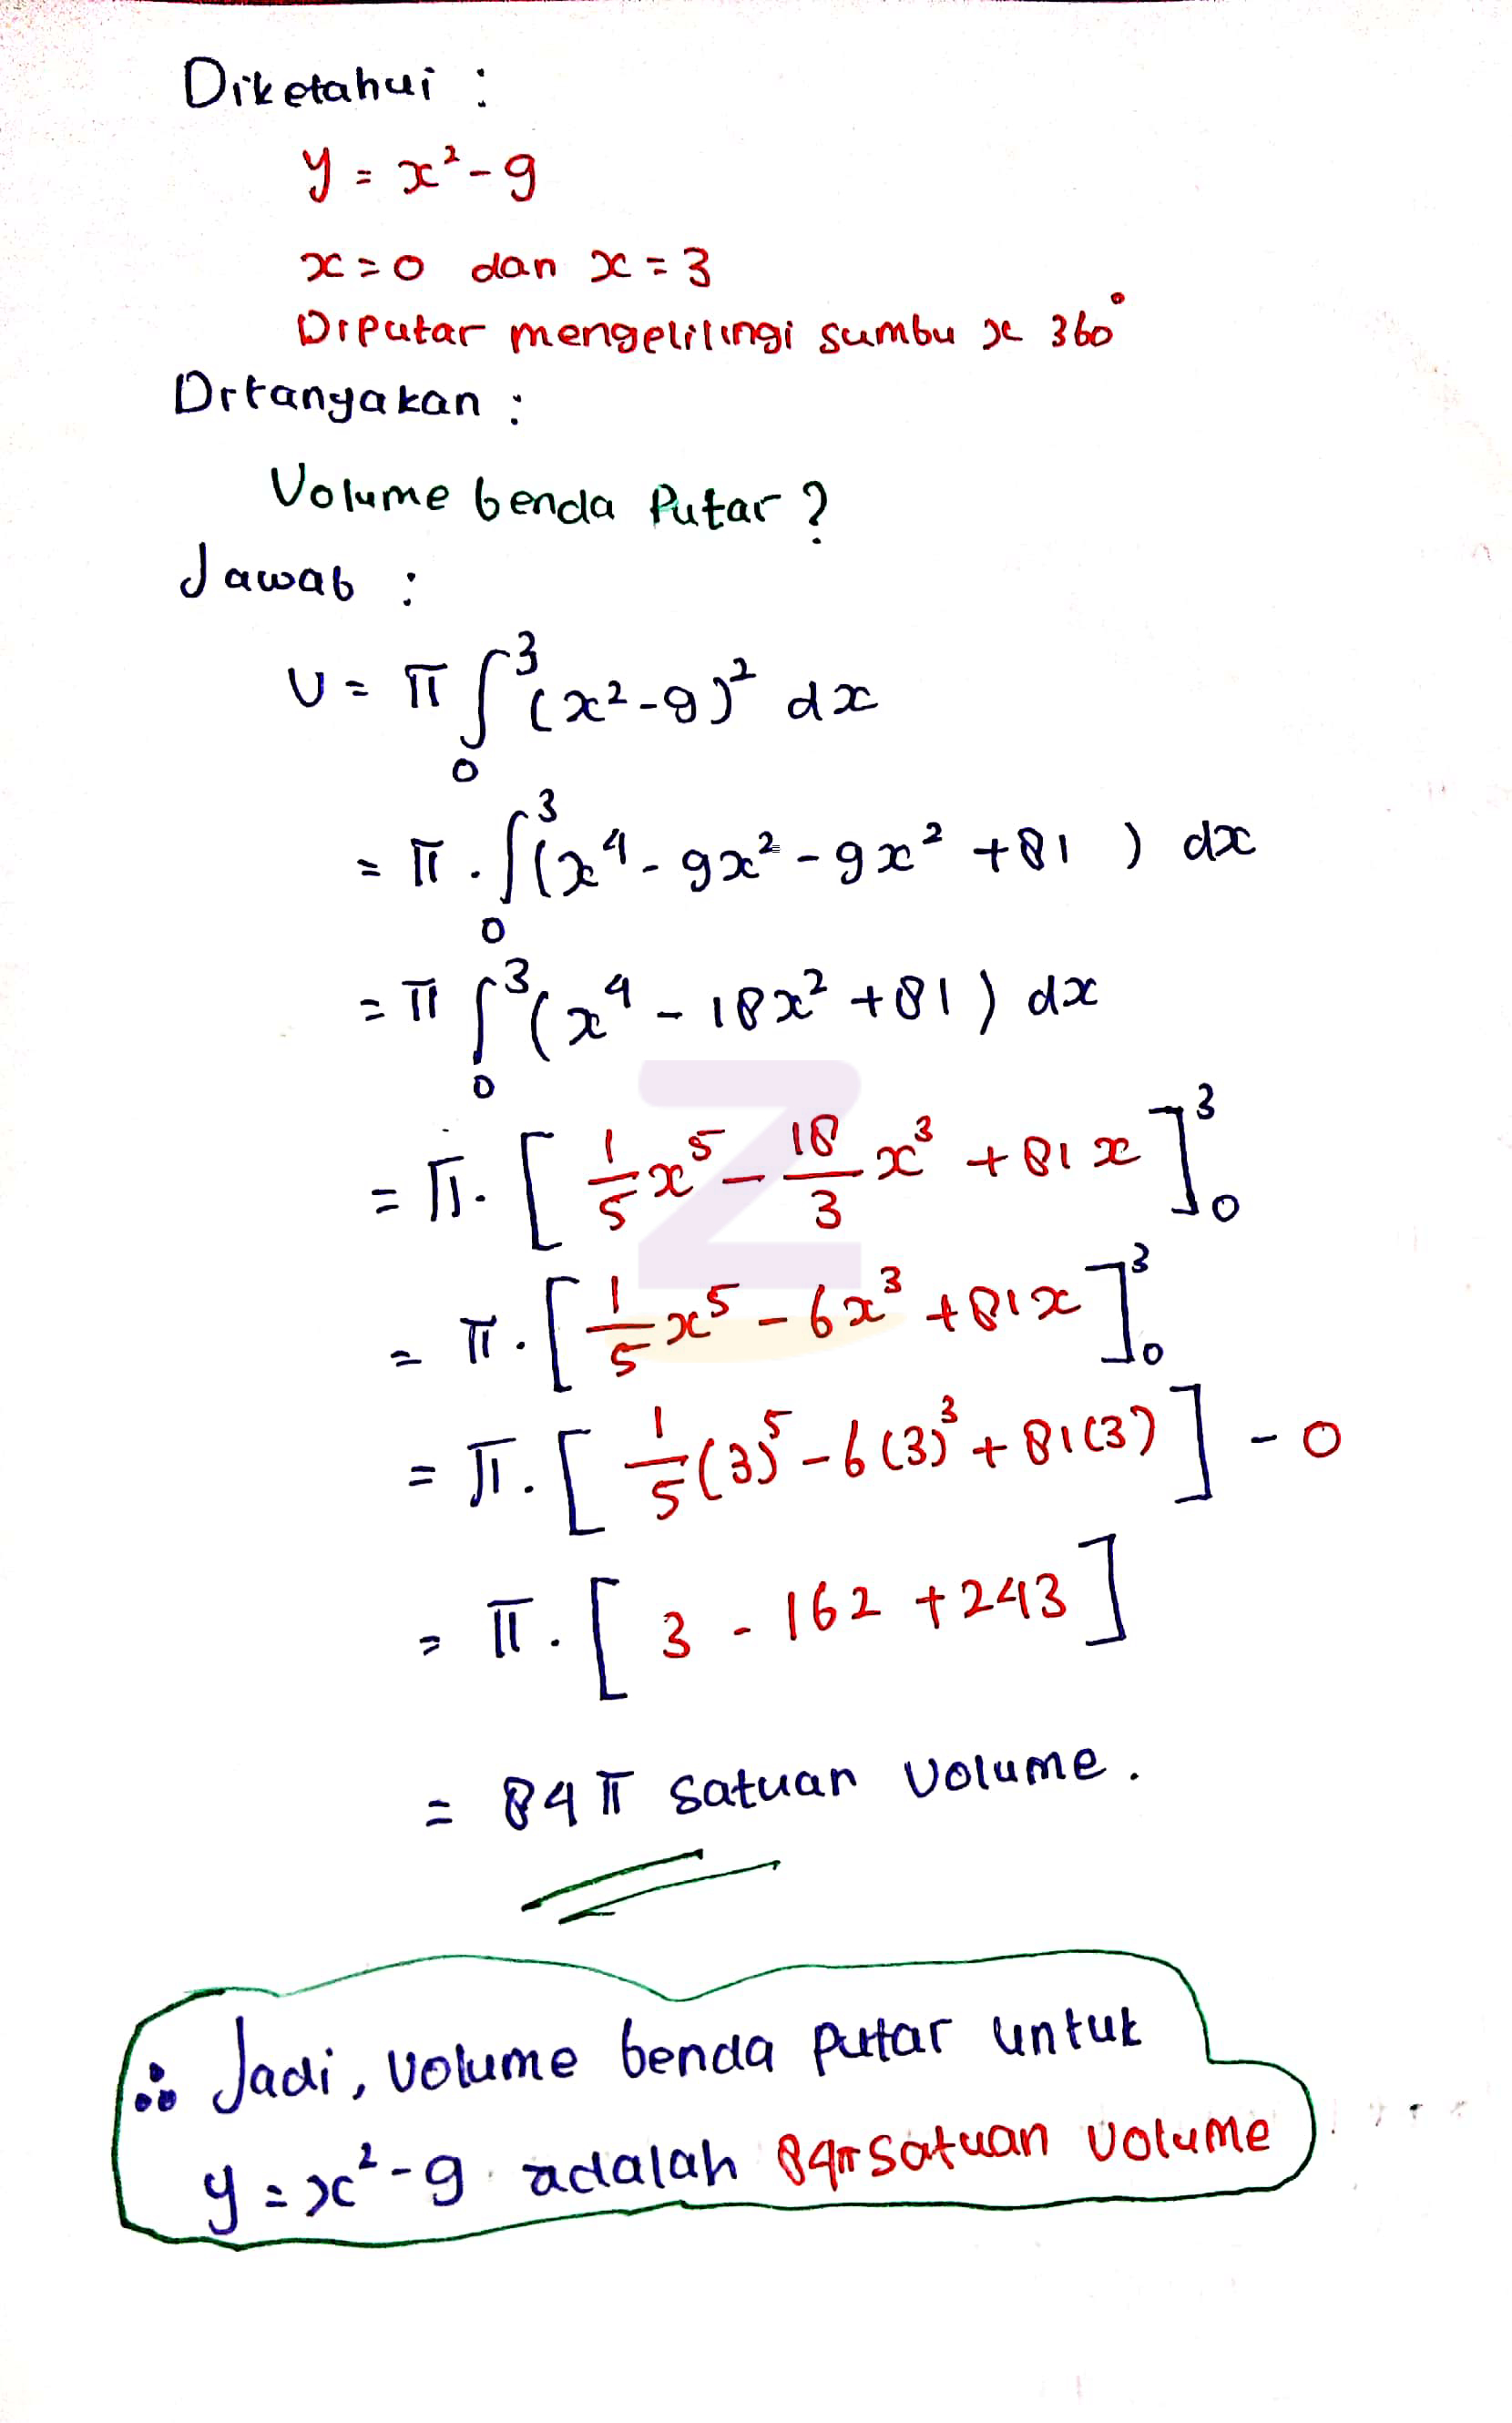 Diketahui :
y = x² - 9
x = 0 dan x = 3
Diputar mengelilingi sumbu x 360°
Ditanyakan :
Volume benda Putar ?
Jawab :
V = π ∫₀³ (x² - 9)² dx
= π . ∫₀³ (x⁴ - 9x² - 9x² + 81 ) dx
= π ∫₀³ (x⁴ - 18x² + 81) dx
= π . [ 1/5 x⁵ - 18/3 x³ + 81x ]₀³
= π . [ 1/5 x⁵ - 6x³ + 81x ]₀³
= π . [ 1/5 (3)⁵ - 6(3)³ + 81(3) ] - 0
= π . [ 3 - 162 + 243 ]
= 84 π satuan volume .
∴ Jadi, volume benda putar untuk
y = x² - 9 adalah 84π satuan volume
Z